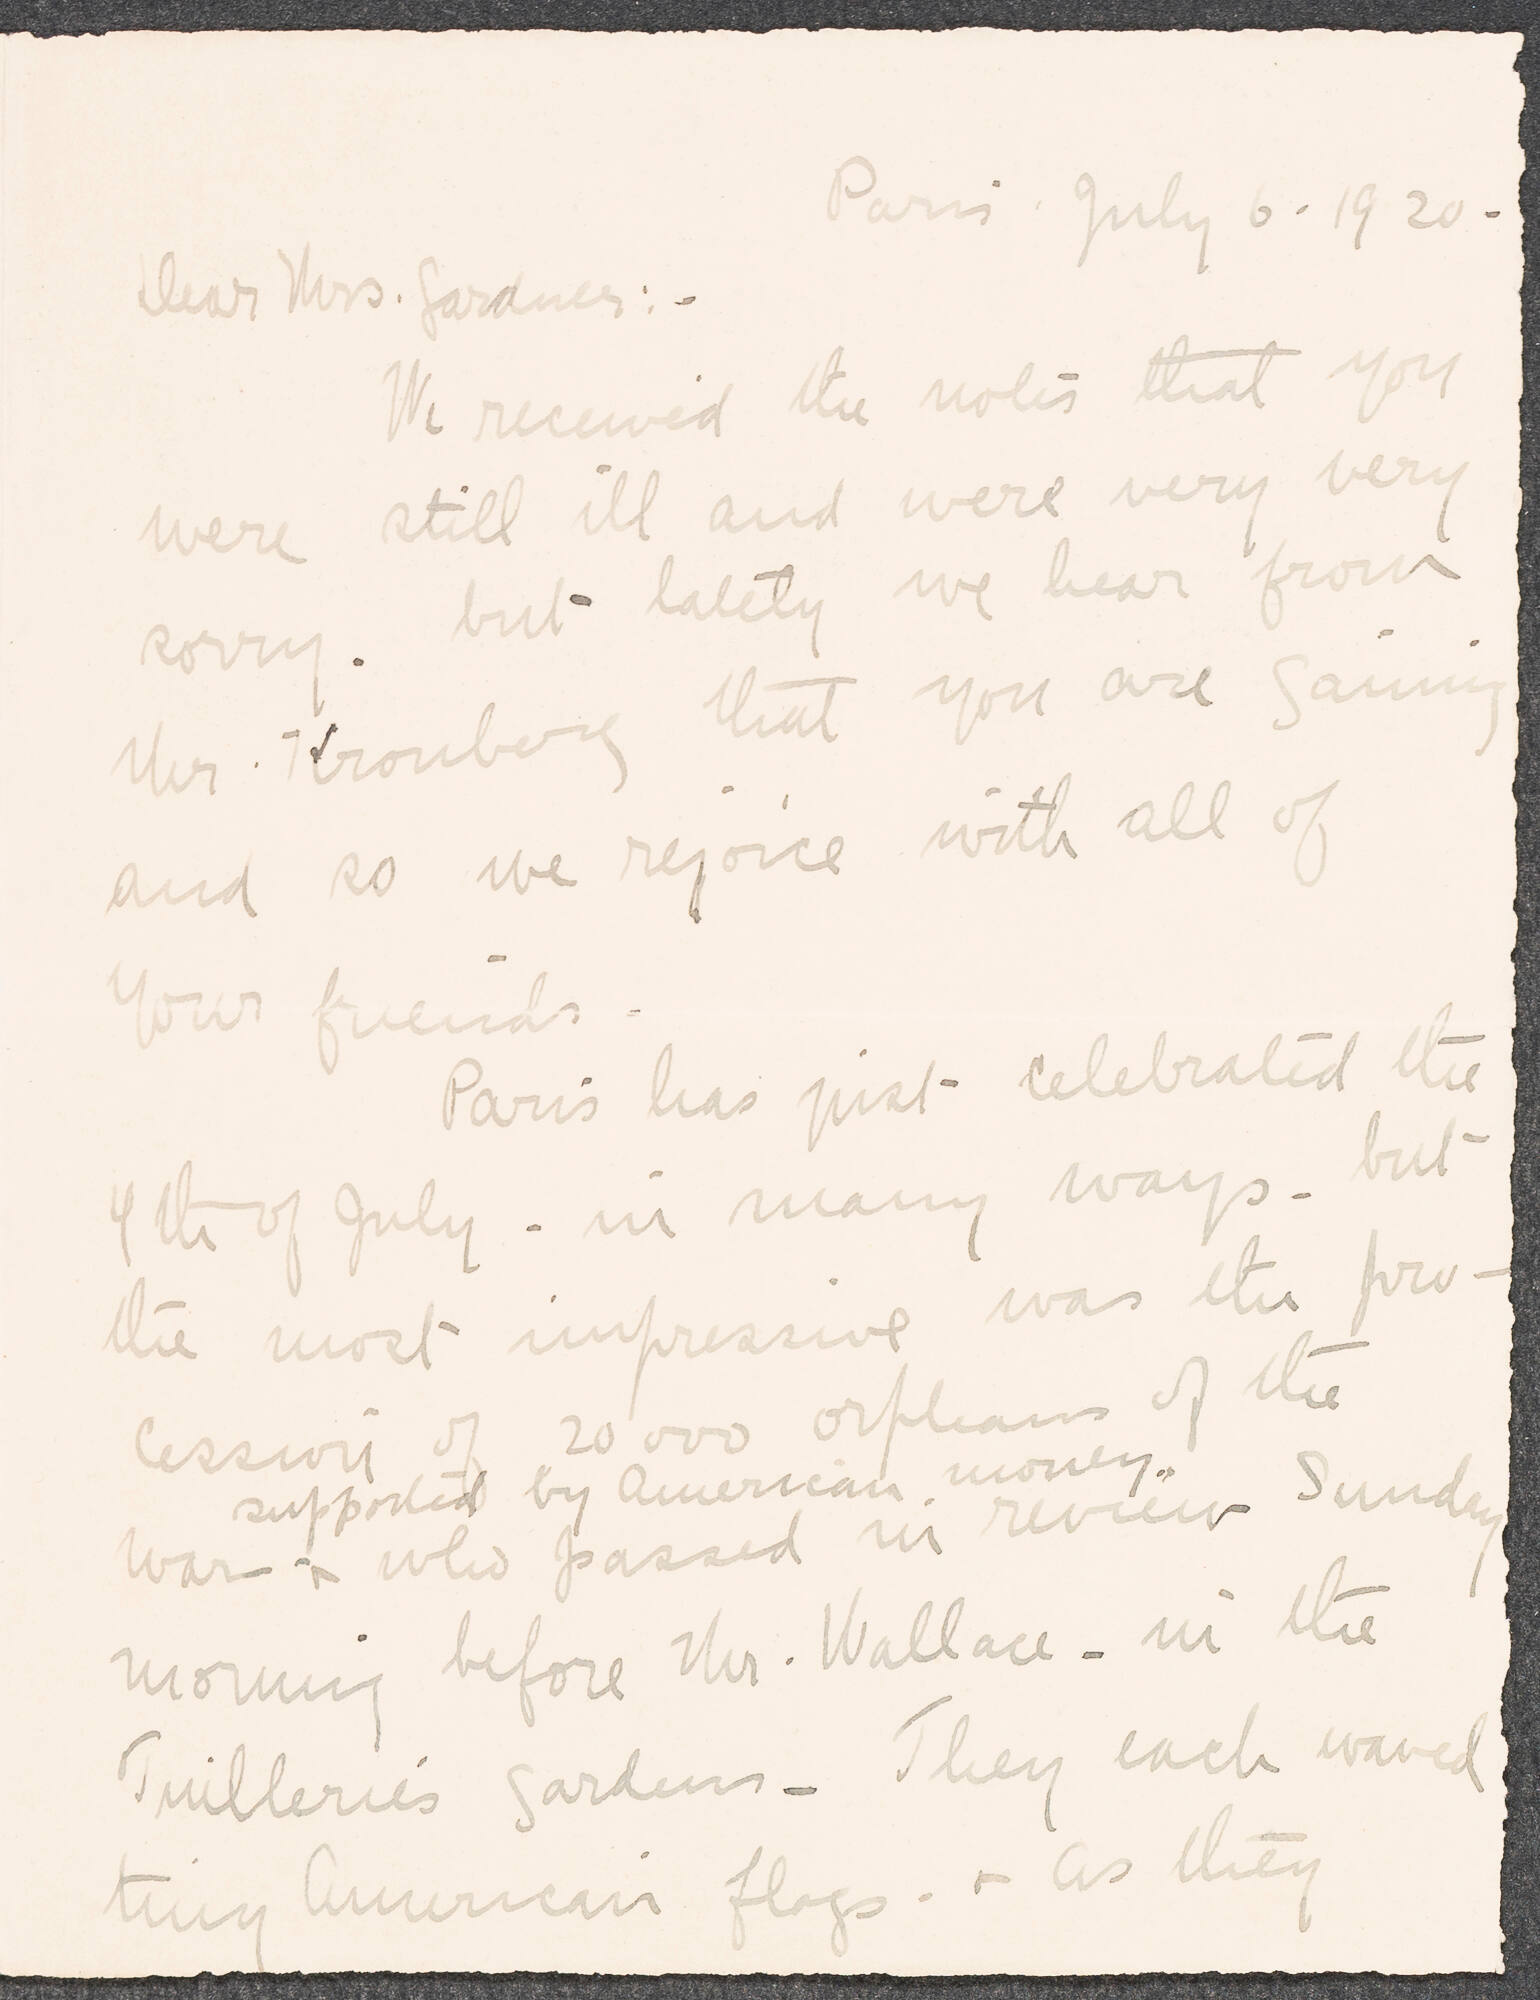 Paris. July 6. 1920-
Dear Mrs. Gardner:-
We received the notes that you
were still ill and were very very
sorry. but lately we hear from
Mr. Kronberg that you are gaining
and so we rejoice with all of
your friends-
Paris has just celebrated the
4th of July - in many ways - but
the most impressive was the pro-
cession of 20000 orphans of the
supported by American money.
war + who passed in review Sunday
morning before Mr. Wallace - in the
Tuilleries gardens - They each waved
tiny American flags. + as they